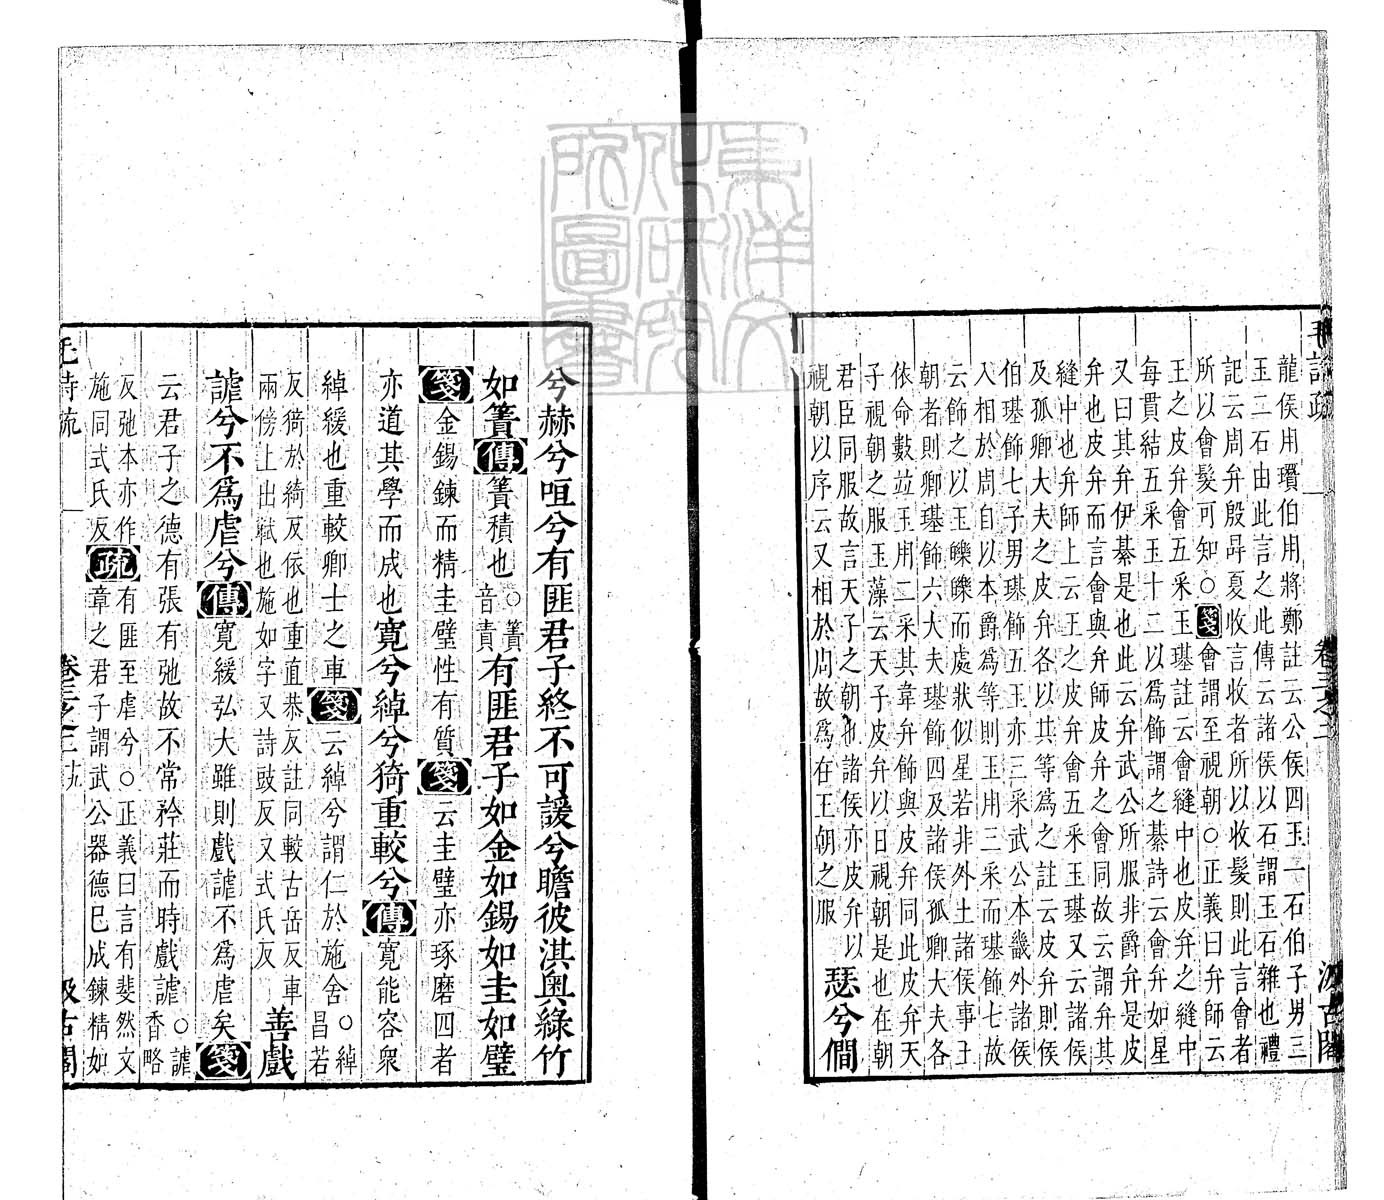 龍侯用瓚伯用將鄭註云公侯四玉一石伯子男三
玉二石由此言之此傳云諸侯以石謂玉石雜也禮
記云周弁殷冔夏收言收者所以收髮則此言會者
所以會髮可知○箋會謂至視朝○正義曰弁師云
王之皮弁會五采玉璂註云會縫中也皮弁之縫中
每貫結五采玉十二以為飾謂之綦詩云會弁如星
又曰其弁伊綦是也此云弁武公所服非爵弁是皮
弁也皮弁而言會與弁師皮弁之會同故云謂弁其
縫中也弁師上云王之皮弁會五采玉璂又云諸侯
及孤卿大夫之皮弁各以其等為之註云皮弁則侯
伯璂飾七子男璂飾五玉亦三采武公本畿外諸侯
入相於周自以本爵為等則玉用三采而璂飾七故
云飾之以玉皪皪而處狀似星若非外土諸侯事王
朝者則卿璂飾六大夫璂飾四及諸侯孤卿大夫各
依命數並玉用二采其韋弁飾與皮弁同此皮弁天
子視朝之服玉藻云天子皮弁以日視朝是也在朝
君臣同服故言天子之朝也諸侯亦皮弁以
視朝以序云又相於周故為在王朝之服
瑟兮僩
毛詩疏
卷三之二
汲古閣
兮赫兮咺兮有匪君子終不可諼兮瞻彼淇奧綠竹
如簀傳簀積也○簀音責有匪君子如金如錫如圭如璧
箋金錫鍊而精圭璧性有質箋云圭璧亦琢磨四者
亦道其學而成也寬兮綽兮猗重較兮傳寬能容衆
綽緩也重較卿士之車箋云綽兮謂仁於施舍○綽昌若
反猗於綺反依也重直恭反註同較古岳反車
兩傍上出軾也施如字又詩豉反又式氏反
善戲
謔兮不為虐兮傳寬緩弘大雖則戲謔不為虐矣箋
云君子之德有張有弛故不常矜莊而時戲謔○謔香略
反弛本亦作施同式氏反
疏有匪至虐兮○正義曰言有斐然文
章之君子謂武公器德巳成鍊精如
毛詩疏
卷三之二
十九
汲古閣
東洋文化研究所圖書